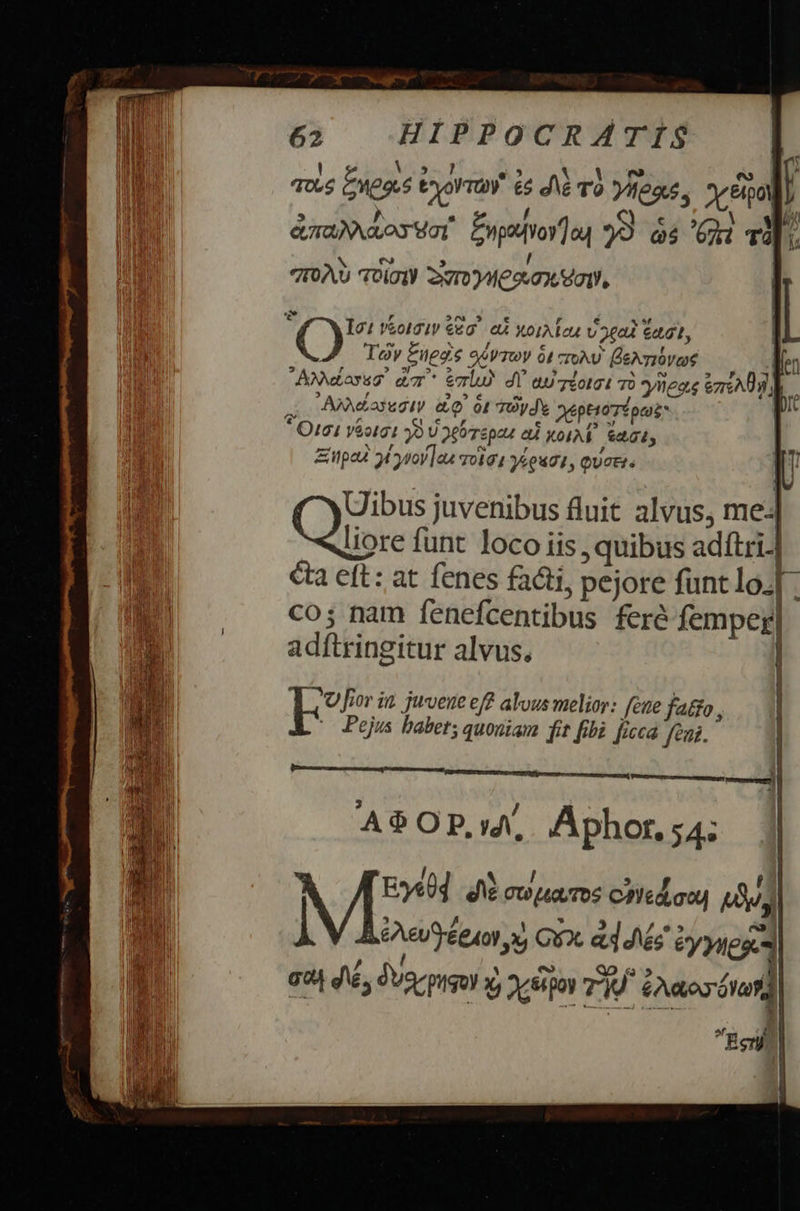 62 HIPPOCRATIS
τοὺς ξηρὰς ἐχόντων· ἐς δὲ τὸ γῆρας, χεῖρον
ἀπαλλάσσουσι· ξηραίνονται γὰρ ὡς ἐπὶ τὸ
πολὺ τοῖσιν ἀπογηράσκουσιν.
Ὅισι νέοισιν ἐοῦσ' αἱ κοιλίαι ὑγραὶ ἔασι,
Τῶν ξηρὰς ὀχόντων οἱ πολὺ βελτιόνως
Ἀλλάσσουσ'
Ἀλλάσσουσιν ἀφ' οἱ τῶνδε χερειοτέρως·
Οἷσι νέοισι γὰρ ὑγρότεραι αἱ κοιλί' ἔασι,
Ξηραὶ γίγνονται τοῖσι γέρουσι, φύσει.
QUibus juvenibus fluit alvus, me-
liore sunt loco iis, quibus adstri-
cta est: at senes facti, pejore sunt lo-
co; nam senescentibus ferè semper
adstringitur alvus.
FUsior in juvene est alvus melior: sene facto,
Pejus habet; quoniam fit sibi sicca seni.
ἈΦΟΡ. νδ'. Aphor. 54.
ΜΕγέθει δὲ σώματος ἐννεάσαι μὲν,
ἐλευθέριον, καὶ οὐκ ἀειδές· ἐγγηρᾶ-
σαι δὲ, δύσχρηστον καὶ χεῖρον τῶν ἐλασσόνων.
Ἔστι